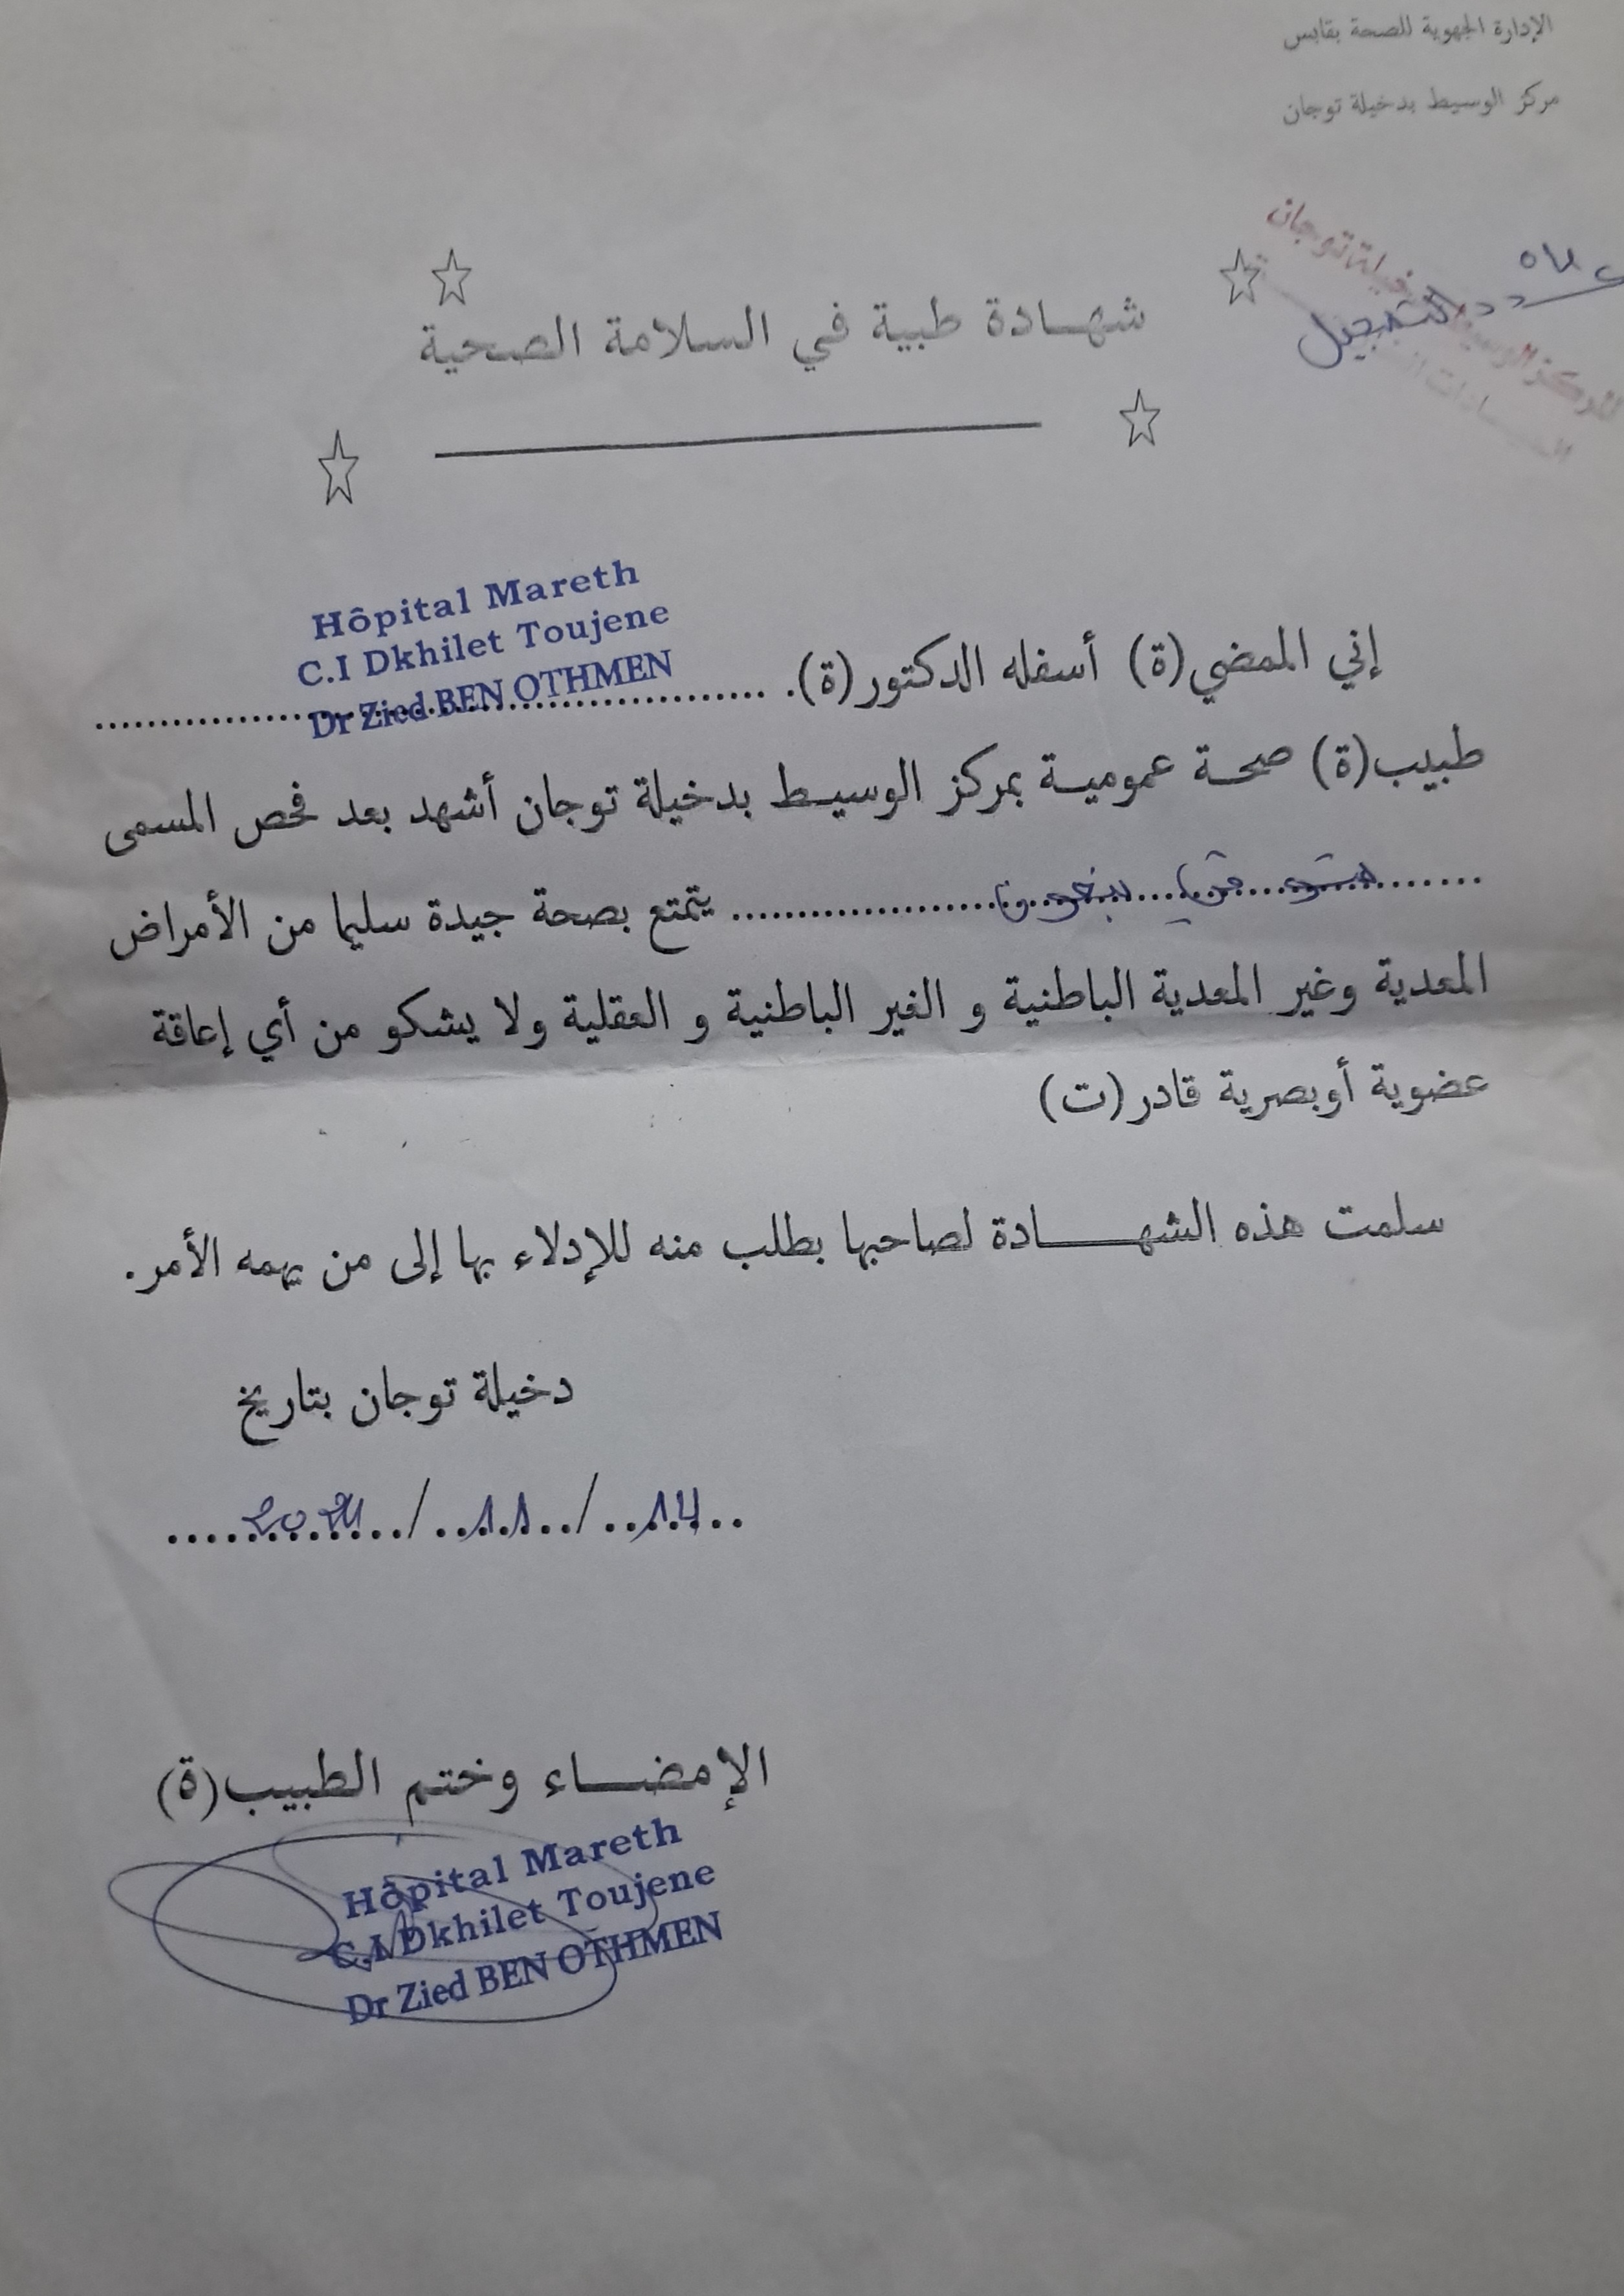 الإدارة الجهوية للصحة بقابس
مركز الوسيط بدخيلة توجان
المركز الوسيط بدخيلة توجان
التسجيل
شهــادة طبية في السلامة الصحية
Hôpital Mareth
C.I Dkhilet Toujene
Dr Zied BEN OTHMEN
إني الممضي(ة) أسفله الدكتور(ة).
طبيب(ة) صحة عمومية بمركز الوسيط بدخيلة توجان أشهد بعد فحص المسمى
يتمتع بصحة جيدة سليما من الأمراض
المعدية وغير المعدية الباطنية و الغير الباطنية و العقلية ولا يشكو من أي إعاقة
عضوية أوبصرية قادر(ت)
سلمت هذه الشهــــادة لصاحبها بطلب منه للإدلاء بها إلى من يهمه الأمر.
دخيلة توجان بتاريخ
14/11/
الإمضــاء وختم الطبيب(ة)
Hôpital Mareth
C.I Dkhilet Toujene
Dr Zied BEN OTHMEN